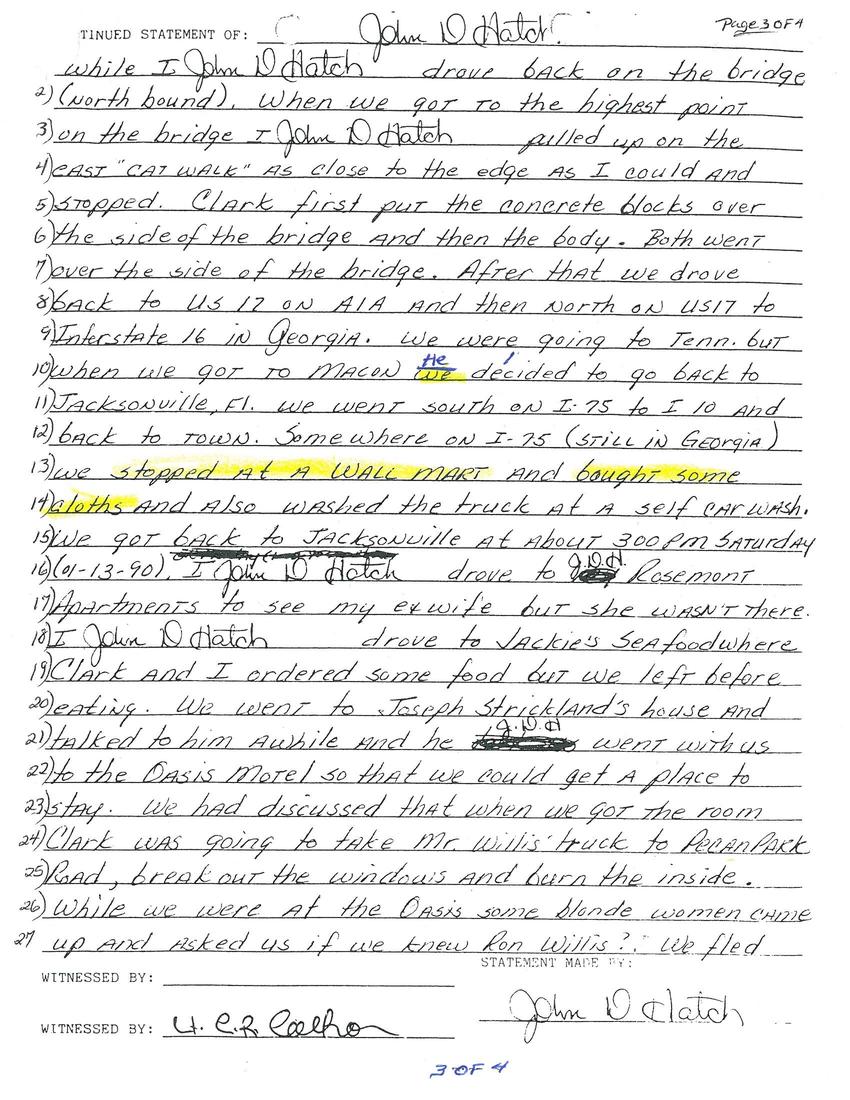 TINUED STATEMENT OF: John D Hatch Page 3 OF 4
while I John D Hatch drove back on the bridge
2) (North bound). When we got to the highest point
3) on the bridge I John D Hatch pulled up on the
4) east "cat walk" as close to the edge as I could and
5) stopped. Clark first put the concrete blocks over
6) the side of the bridge and then the body. Both went
7) over the side of the bridge. After that we drove
8) back to US 17 on A1A and then North on US17 to
9) Interstate 16 in Georgia. We were going to Tenn. but
He
10) when we got to Macon we decided to go back to
11) Jacksonville, Fl. we went south on I-75 to I 10 and
12) back to town. Somewhere on I-75 (still in Georgia)
13) we stopped at a Wall Mart and bought some
14) cloths and also washed the truck at a self car wash.
15) We got back to Jacksonville at about 300 pm Saturday
J.D.H.
16) (01-13-90), I John D Hatch drove to Rosemont
17) Apartments to see my exwife but she wasn't there.
18) I John D Hatch drove to Jackie's Seafood where
19) Clark and I ordered some food but we left before
20) eating. We went to Joseph Strickland's house and
J.D.H
21) talked to him awhile and he went with us
22) to the Oasis Motel so that we could get a place to
23) stay. We had discussed that when we got the room
24) Clark was going to take Mr. Willis' truck to Pecan Park
25) Road, break out the windows and burn the inside.
26) While we were at the Oasis some blonde women came
27 up and asked us if we knew Ron Willis?. We fled
STATEMENT MADE BY:
WITNESSED BY:
WITNESSED BY: John D Hatch
3 OF 4